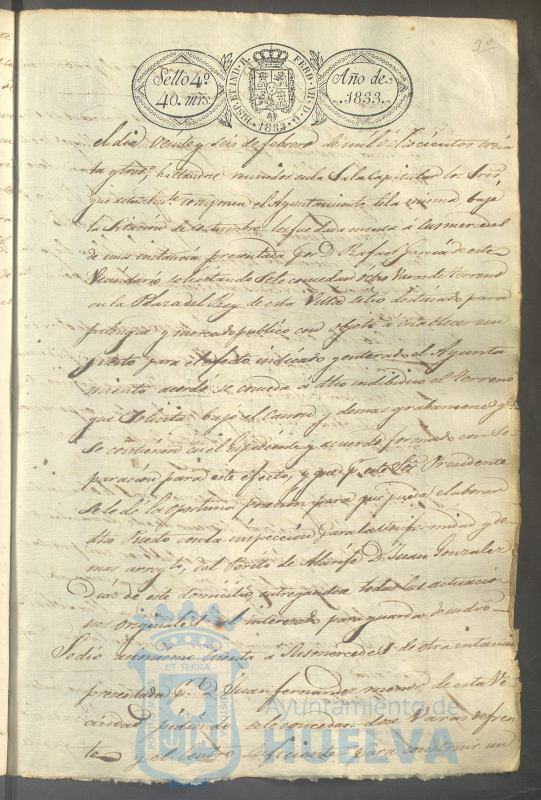 3º
Sello 4º
40. mrs.
HISP. ET IND. R.
FERD. VII. D. G.
1833
Año de
1833.
el dia veinte y seis de febrero de mil ochocientos trein
ta y tres, hallandose reunidos en la Sala Capitular los Sres.
que componen el Ayuntamiento de la misma bajo
la sitacion de costumbre les fue dada cuenta á las mercedes
de una instancia presentada por D. Rafael Garcia de este
Vecindario solicitando se le conceda ocho Varas de terreno
en la Plaza del Rey de esta Villa sitio destinado para
y mercado publico con objeto á establecer un
puesto para el efecto indicado y enterado el Ayunta
miento acordó se conceda á dho individuo el terreno
que solicita bajo el Canon y demas grabamenes qe.
se contienen en el Espediente y acuerdo formado con se
paracion para este efecto, y que pr. este Sor. Presidente
se le dé la oportuna posecion para que pueda elaborar
dho Puesto con la inspeccion para la uniformidad y de
mas arreglo, del Perito de Alarife D. Juan Gonzalez
Diaz de este domicilio, entregandose todas las actuacio
nes originales al interesado para guarda de su dro.
Se dió asimismo cuenta á Sus mercedes de otra instancia
presentada pr. D. Juan Fernandez menor de esta Ve
cindad pidiendo se le concedan doce Varas de fren
te y el fondo suficiente para construir un
PORTUS MARIS
ET TERRÆ
CUSTODIA
Ayuntamiento de
HUELVA